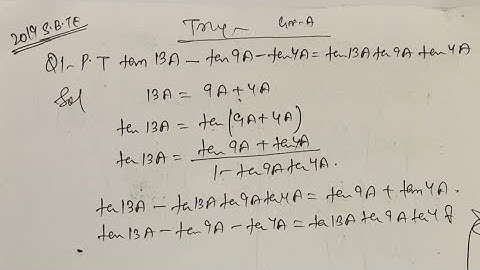 2019 S.B.TE
Trig- Gr-A
Q1- P.T tan 13A - tan 9A - tan 4A = tan 13A tan 9A tan 4A
Sol 13A = 9A + 4A
tan 13A = tan (9A + 4A)
tan 13A = tan 9A + tan 4A
1 - tan 9A tan 4A.
tan 13A - tan 13A tan 9A tan 4A = tan 9A + tan 4A.
tan 13A - tan 9A - tan 4A = tan 13A tan 9A tan 4A